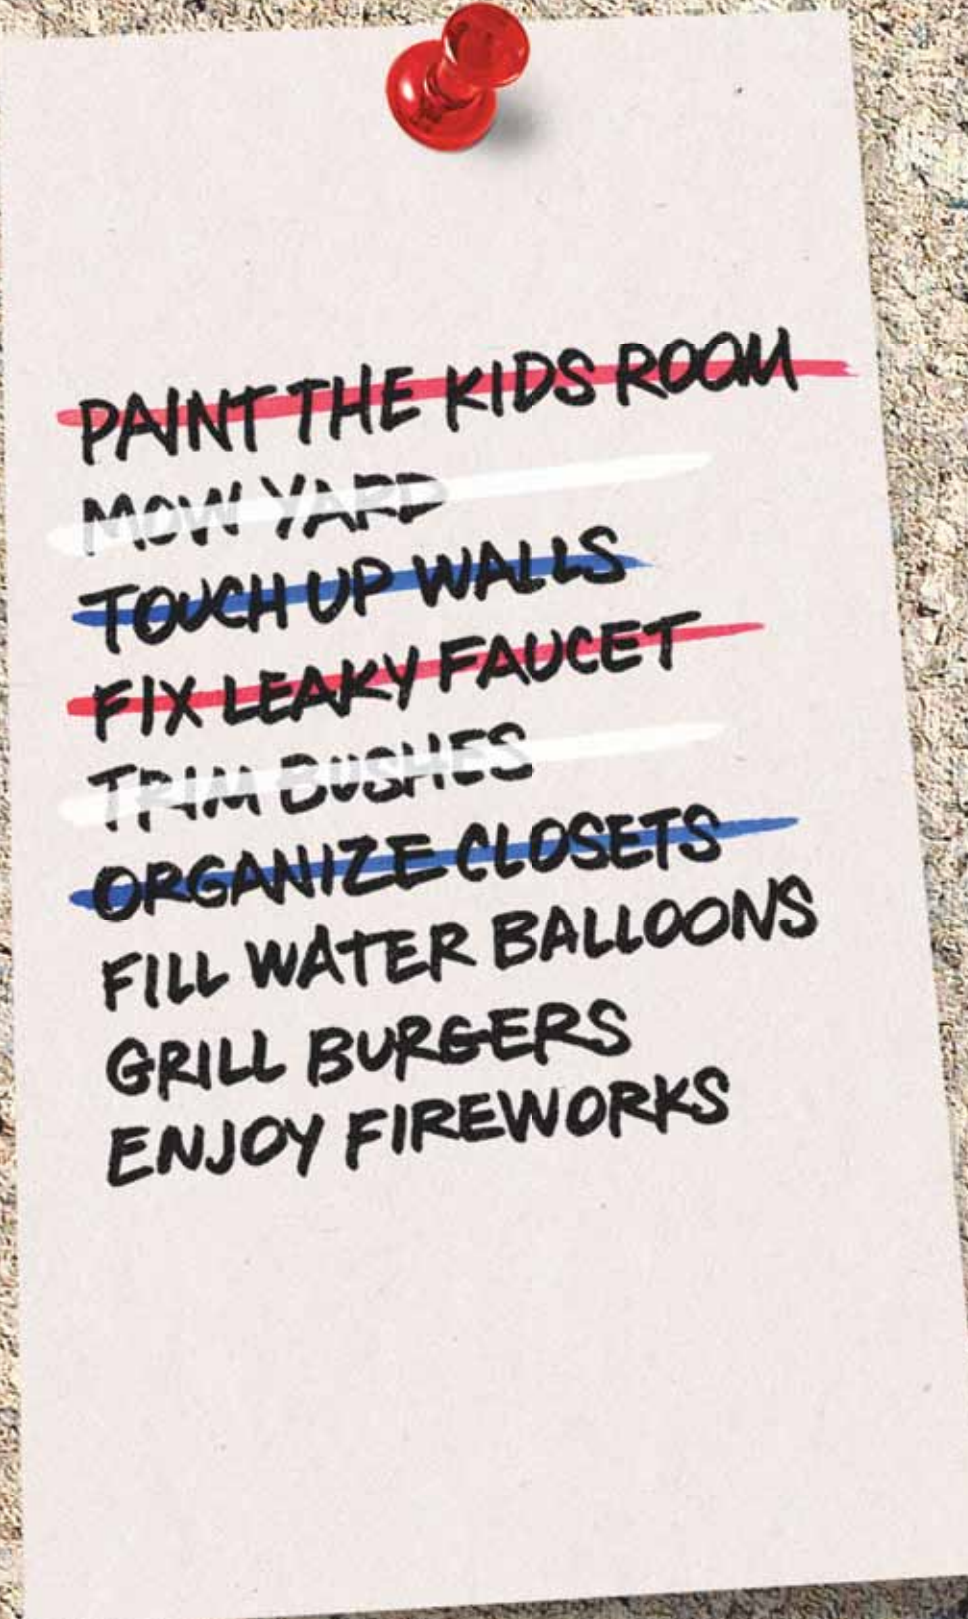 PAINT THE KIDS ROOM
MOW YARD
TOUCH UP WALLS
FIX LEAKY FAUCET
TRIM BUSHES
ORGANIZE CLOSETS
FILL WATER BALLOONS
GRILL BURGERS
ENJOY FIREWORKS